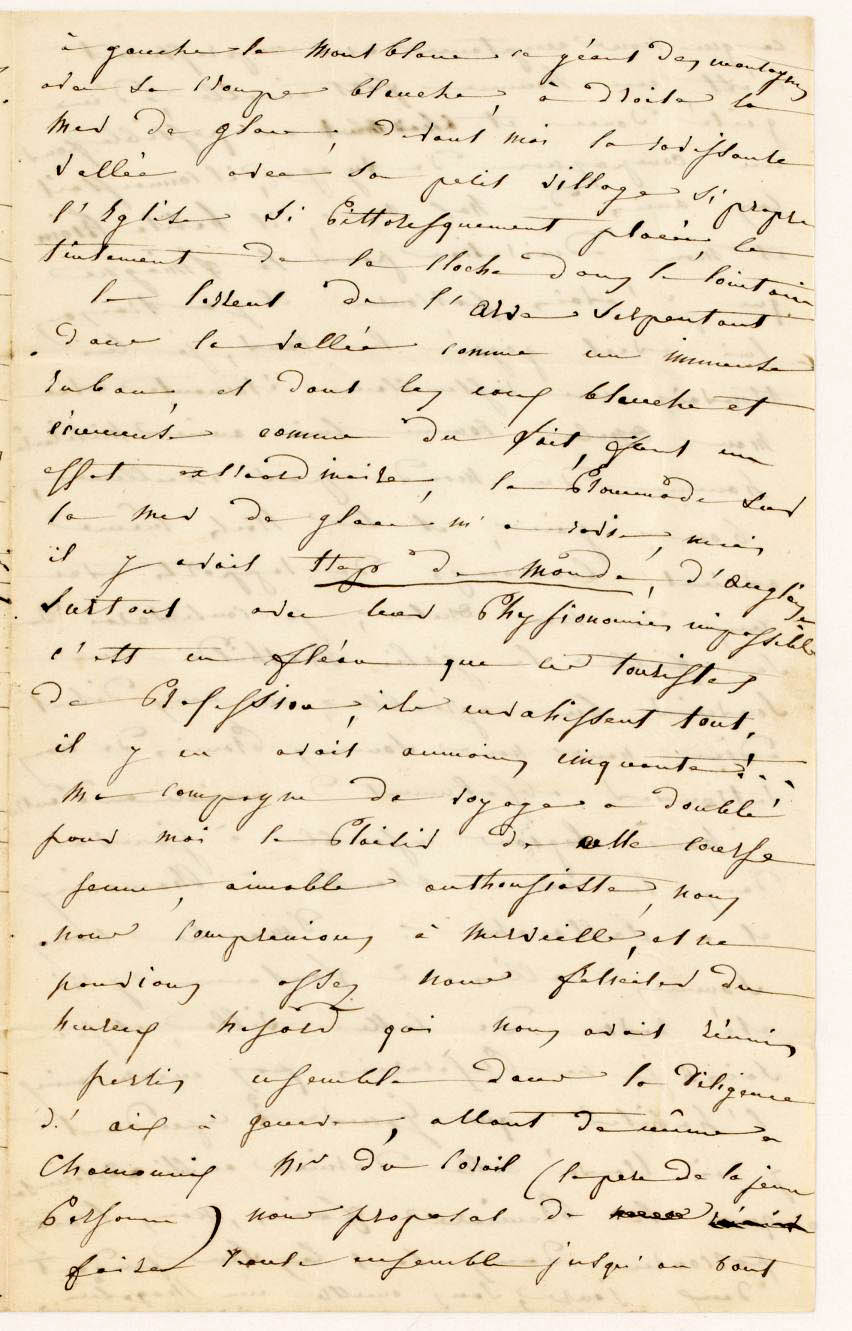 à gauche le Montblanc ce géant des montagnes
avec sa croupe blanche, à droite la
Mer de glace, devant moi la ravissante
vallée avec son petit village si propre
l'Eglise si Pittoresquement placée, le
tintement de la cloche dans le lointain
le torrent de l'Arve serpentant
dans la vallée comme un immense
ruban, et dont les eaux blanche et
écumeuse comme du lait, font un
effet extraordinaire, la Promenade sur
la mer de glace m'a ravie, mais
il y avait trop de monde, d'anglais
surtout avec leur Physionomies impossible
c'est un fléau que ces touristes
de Profession, ils envahissent tout,
il y en avait aumoins cinquante!...
Ma compagne de voyage a doublé
pour moi le Plaisir de cette course
jeune, aimable enthousiaste, nous
nous comprenions à merveille, et ne
pouvions assez nous féliciter du
heureux hasard qui nous avait réunies
parties ensemble dans la Diligence
d'aix à genève, allant de même a
Chamounix Mr du Corail (le pere de la jeune
Personne) nous proposat de
faire route ensemble jusqu'au bout